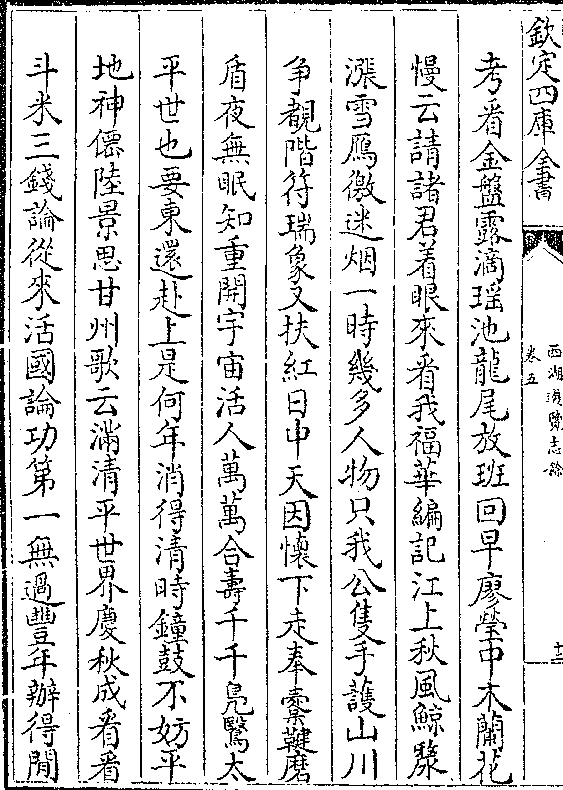 欽定四庫全書
西湖遊覽志餘
卷五
十二
考看金盤露滴瑶池龍尾放班回早廖瑩中木蘭花
慢云請諸君着眼來看我福華編記江上秋風鯨漦
漲雪鴈徼迷烟一時幾多人物只我公隻手護山川
争覩階符瑞象又扶紅日中天因懷下走奉櫜鞬磨
盾夜無眠知重開宇宙活人萬萬合壽千千鳬鷖太
平世也要東還赴上是何年消得清時鐘鼓不妨平
地神僊陸景思甘州歌云滿清平世界慶秋成看看
斗米三錢論從來活國論功第一無過豐年辦得閒